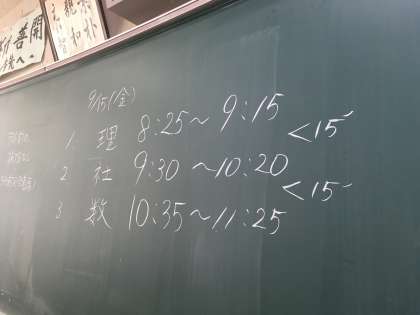 開
善
親和
9/15(金)
1. 理 8:25～9:15
<15
2 社 9:30～10:20
<15
3 数 10:35～11:25